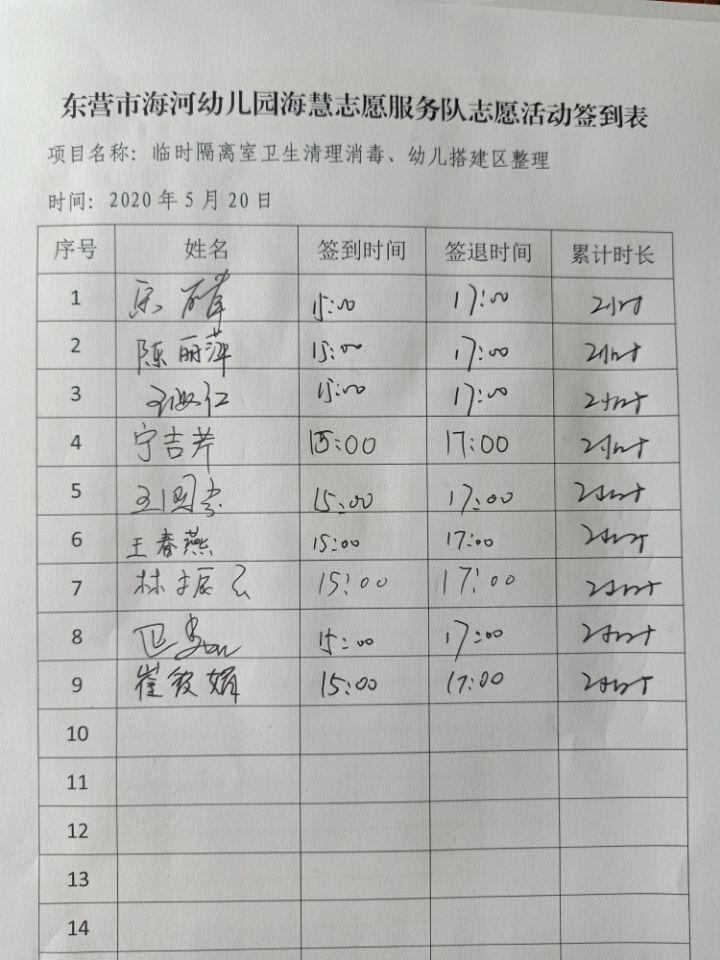 东营市海河幼儿园海慧志愿服务队志愿活动签到表
项目名称：临时隔离室卫生清理消毒、幼儿搭建区整理
时间：2020年5月20日
序号 姓名 签到时间 签退时间 累计时长
1 15:00 17:00 2小时
2 陈丽萍 15:00 17:00 2小时
3 15:00 17:00 2小时
4 宁吉芹 15:00 17:00 2小时
5 15:00 17:00 2小时
6 王春燕 15:00 17:00 2小时
7 林振云 15:00 17:00 2小时
8 15:00 17:00 2小时
9 崔敏娟 15:00 17:00 2小时
10
11
12
13
14